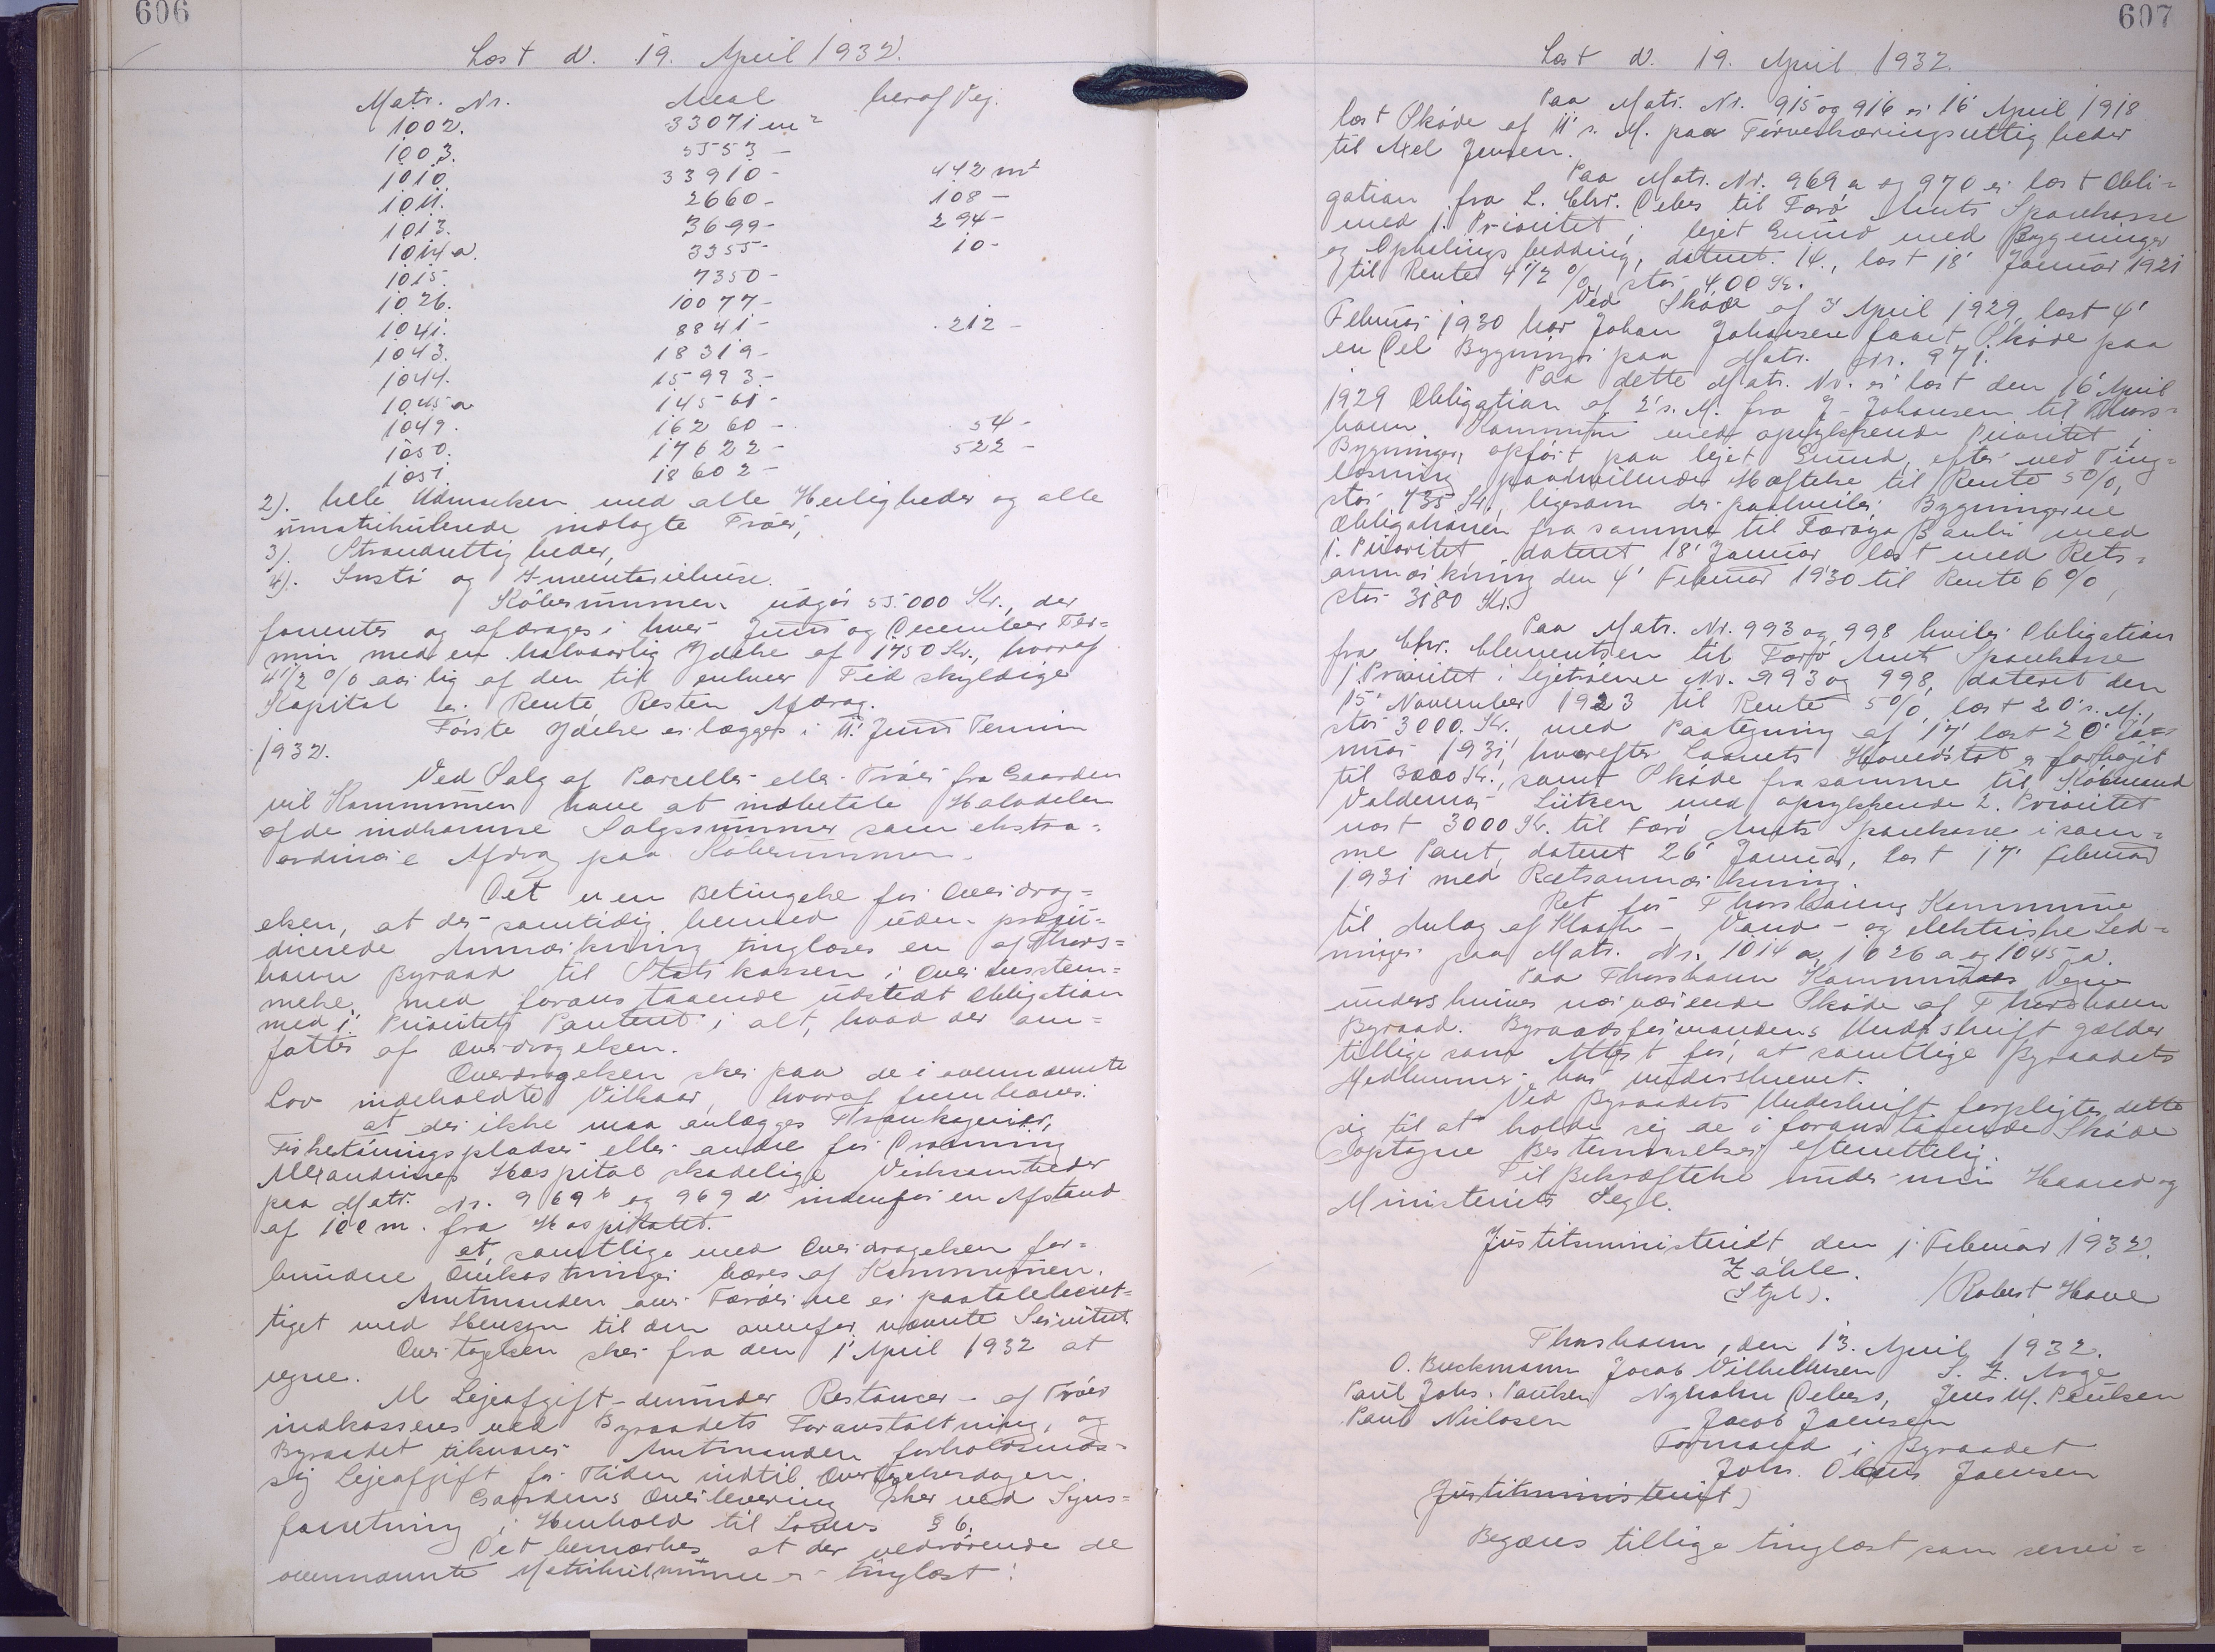 606
Læst d. 19. April 1932.
Matr. Nr. Areal heraf Vej.
1002. 33071 m²
1003. 5553 -
1010. 33910 - 442 m²
1011. 2660 - 108 -
1013. 3699 - 294 -
1014 a. 3355 - 10 -
1015. 7350 -
1026. 10077 -
1041. 8841 - 212 -
1043. 18319 -
1044. 15993 -
1045 a 14561 -
1049. 16260 - 54 -
1050. 17622 - 522 -
1051. 18602 -
2). hele Udmarken med alle Herligheder og alle
umatrikulerede indlagte Trøer,
3). Strandrettigheder,
4). Inst. og Inventariehuse.
Købesummen udgør 55.000 Kr., der
forrentes og afdrages i hver Juni og December Ter=
min med en halvaarlig Ydelse af 1750 Kr., hvoraf
4 1/2 % aarlig af den til enhver Tid skyldige
Kapital er Rente Resten Afdrag.
Første Ydelse erlægges i 11. Juni Termin
1932.
Ved Salg af Parceller eller Trøer fra Gaarden
vil Kommunen have at indbetale Halvdelen
af de indkomne Salgssummer som ekstra=
ordinære Afdrag paa Købesummen.
Det er en Betingelse for Overdrag=
elsen, at der samtidig hermed uden præju=
dicerede Anmærkning tinglæses en af Thors=
havn Byraad til Statskassen i Overensstem=
melse med foranstaaende udstedt Obligation
med 1' Prioritets Panteret i alt, hvad der om=
fattes af Overdragelsen.
Overdragelsen sker paa de i ovennævnte
Lov indeholdte Vilkaar, hvoraf fremhæves:
at der ikke maa anlægges Trankogerier,
Fisketørringspladser eller andre for Dronning
Alexandrines Hospital skadelige Virksomheder
paa Matr. Nr. 969 b og 969 d indenfor en Afstand
af 100 m. fra Hospitalet.
at samtlige med Overdragelsen for=
bundne Omkostninger bæres af Kommunen.
Amtmanden over Færøerne er paataleberet=
tiget med Hensyn til den ovenfor nævnte Servitut.
Overtagelsen sker fra den 1' April 1932 at
regne.
Al Lejeafgift - derunder Restancer - af Trøer
indkasseres ved Byraadets Foranstaltning, og
Byraadet tilsvarer Amtmanden forholdsmæs=
sig Lejeafgift for Tiden indtil Overtagelsesdagen.
Gaardens Overlevering sker ved Syns=
forretning i Henhold til Lovens § 6.
Det bemærkes, at der vedrørende de
ovennævnte Matrikulnumre er tinglæst:
607
Læst d. 19. April 1932.
Paa Matr. Nr. 915 og 916 er 16' April 1918
læst Skøde af 11' s. M. paa Tørveskæringsrettigheder
til Axel Jensen.
Paa Matr. Nr. 969 a og 970 er læst Obli=
gation fra L. Chr. Debes til Færø Amts Sparekasse
med 1. Prioritet i lejet Grund med Bygninger
og Ophalingsbedding, dateret 14., læst 18' Januar 1921
til Rente 4 1/2 %, stor 400 Kr.
Ved Skøde af 3' April 1929, læst 4'
Februar 1930 har Johan Johansen faaet Skøde paa
en Del Bygninger paa Matr. Nr. 971.
Paa dette Matr. Nr. er læst den 16' April
1929 Obligation af 2' s. M. fra J. Johansen til Thors=
havn Kommune med oprykkende Prioritet i
Bygninger, opført paa lejet Grund, efter ved Ting=
læsning paahvilende Hæftelse til Rente 5 %,
stor 735 Kr., ligesom der paahviler Bygningerne
Obligationen fra samme til Færøya Banki med
1. Prioritet dateret 18' Januar læst med Rets=
anmærkning den 4' Februar 1930 til Rente 6 %,
stor 3180 Kr.
Paa Matr. Nr. 993 og 998 hviler Obligation
fra Chr. Clementsen til Færø Amts Sparekasse
1 Prioritet i Lejetrøerne Nr. 993 og 998, dateret den
15' November 1923 til Rente 5 %, læst 20' s. M.,
stor 3000. Kr., med Paategning af 17' læst 20' Ja=
nuar 1931, hvorefter Laanets Hovedstol er forhøjet
til 3000 Kr., samt Skøde fra samme til Købmand
Valdemar Lützen med oprykkende 2. Prioritet
næst 3000 Kr. til Færø Amts Sparekasse i sam=
me Pant, dateret 26' Januar, læst 17' Februar
1931 med Retsanmærkning.
Ret for Thorshavns Kommune
til Anlæg af Kloak-, Vand- og elektriske Led=
ninger paa Matr. Nr. 1014 a, 1026 a og 1045 a.
Paa Thorshavn Kommunes Vegne
underskrives nærværende Skøde af Thorshavn
Byraad. Byraadsformandens Underskrift gælder
tillige som Attest for, at samtlige Byraadets
Medlemmer har underskrevet.
Ved Byraadets Underskrift forpligter dette
sig til at holde sig de i foranstaaende Skøde
optagne Bestemmelser efterrettelig.
Til Bekræftelse under min Haand og
Ministeriets Segl.
Justitsministeriet, den 1. Februar 1932.
Zahle.
(Stpl). / Robert Have
Thorshavn, den 13. April 1932.
O. Buckmann Jacob Vilhelmsen S. Z. Arge
Paul Johs. Poulsen Nyholm Debess, Jens M. Poulsen
Paul Niclasen Jacob Joensen
Formand i Byraadet
Johs. Olavus Joensen
(Justitsministeriet)
Begæres tillige tinglæst som servi=